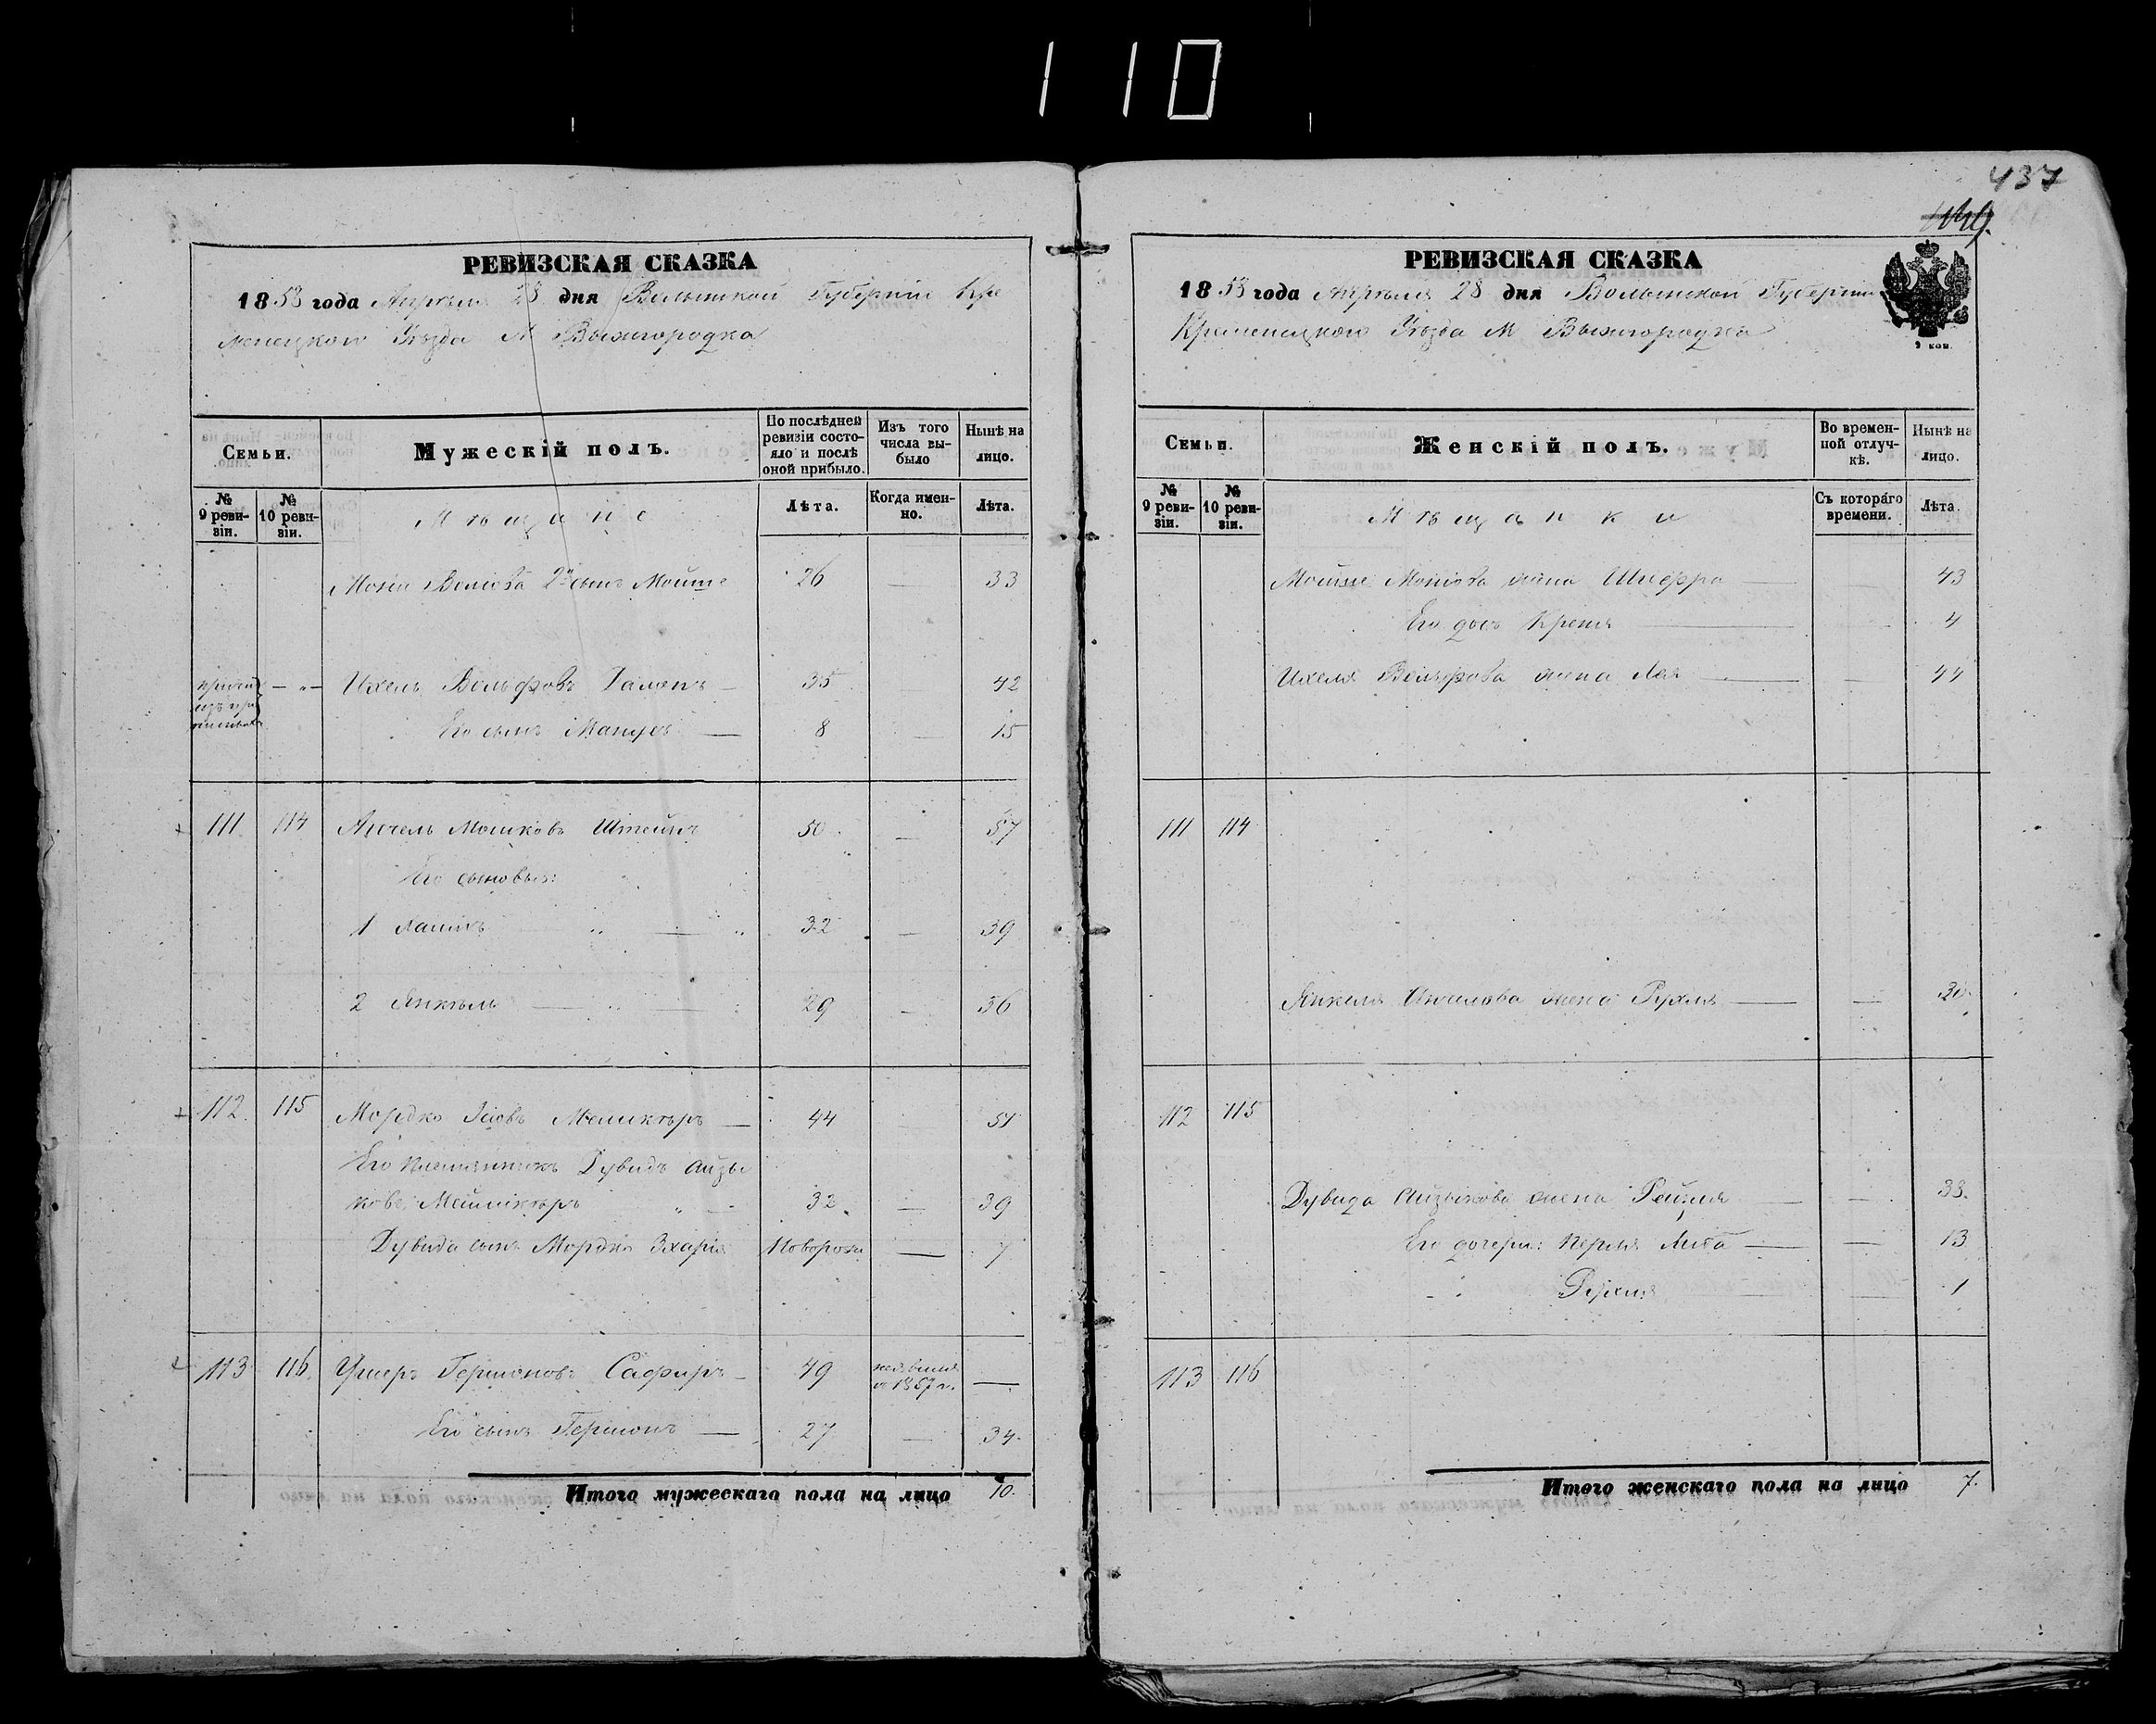 110
437
РЕВИЗСКАЯ СКАЗКА
1858 года Апрѣля 28 дня Волынской Губерніи Кре
менецкого Уѣзда М Вышгородка
Семьи.
Мужескій полъ.
По послѣдней ревизіи состояло и послѣ оной прибыло.
Изъ того числа выбыло
Нынѣ на лицо.
№ 9 ревизіи.
№ 10 ревизіи.
Мѣщане
Лѣта.
Когда именно.
Лѣта.
2й сынъ Мойше 26 — 33
Ихель Вольфовъ 35 42
Его сынъ 8 — 15
111 114 Мошковъ Штейнъ 50 — 57
Его сыновья:
1 32 — 39
2 Янкель 29 — 36
112 115 Мордко 44 51
Его племянникъ Дувидъ Айзы
ковъ 32 — 39
Дувида сынъ Мордко Зхарія Новорож — 7
113 116 Ушеръ Гершоновъ Сафиръ 49 1857 г. —
Его сынъ Гершонъ 27 — 34
Итого мужескаго пола на лицо 10.
РЕВИЗСКАЯ СКАЗКА
1858 года Апрѣля 28 дня Волынской Губерніи
Кременецкого Уѣзда М Вышгородка
Семьи.
Женскій полъ.
Во временной отлучкѣ.
Нынѣ на лицо.
№ 9 ревизіи.
№ 10 ревизіи.
Мѣщанки
Съ котораго времени.
Лѣта.
Мойше жена Шифра — 43
Его дочь — 4
Ихеля Вольфова жена Лея — 44
111 114
Янкеля жена Рухля — 30
112 115
Дувида Айзыкова жена Рейзля — 33
Его дочери: Перля Либа — 13
Рухля — 1
113 116
Итого женскаго пола на лицо 7.